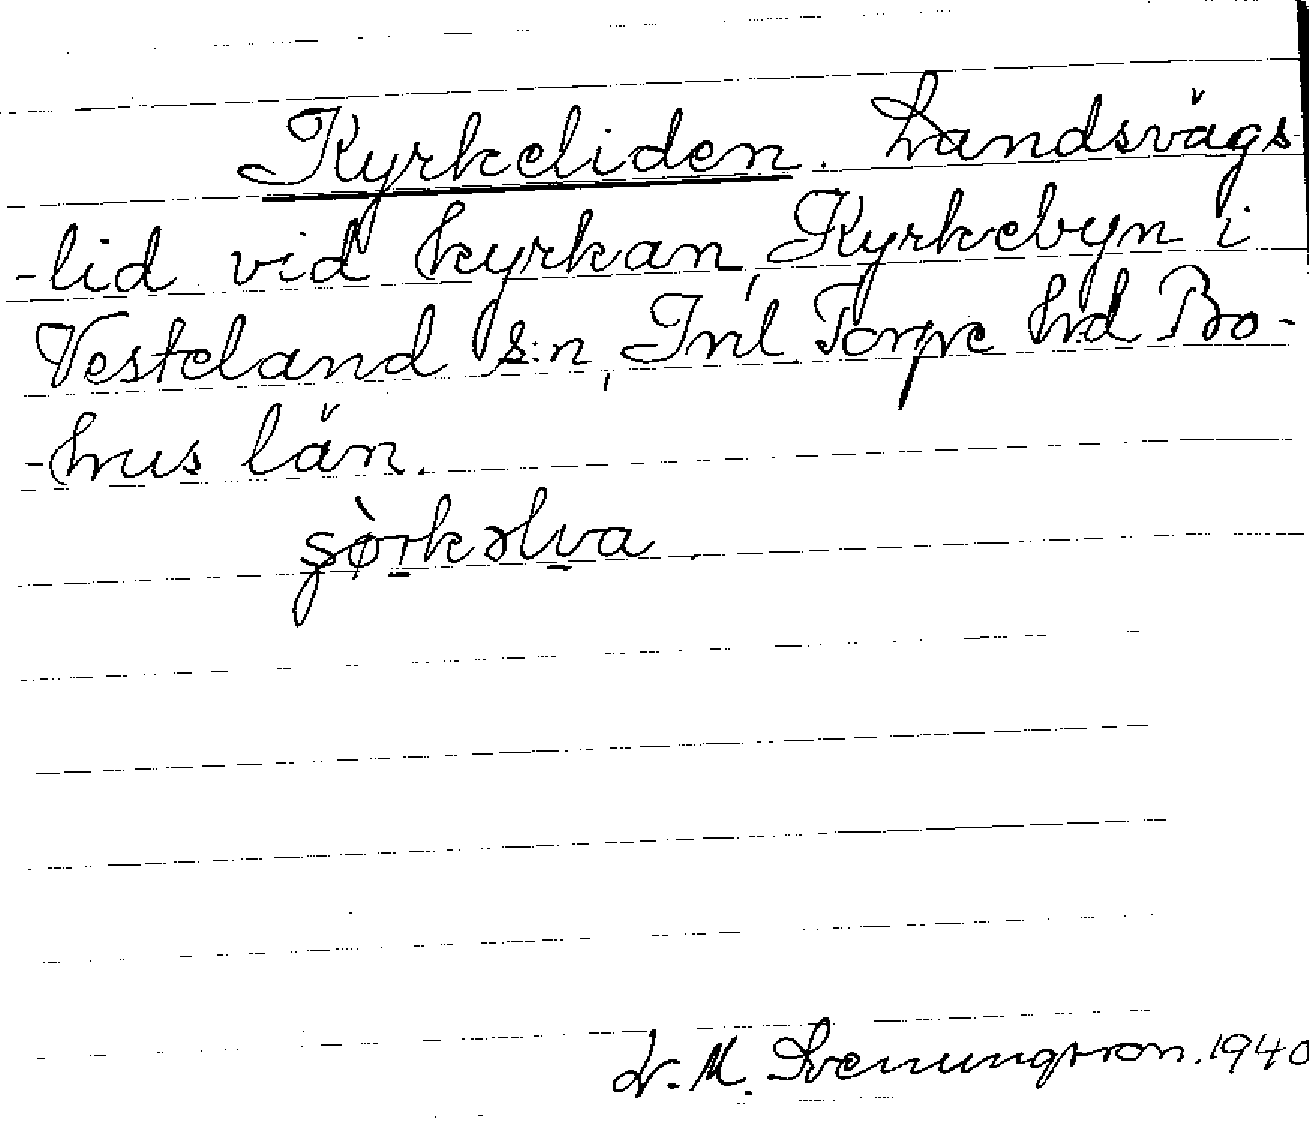 Kyrkeliden. Landsvägs
-lid vid kyrkan, Kyrkebyn i
Vesteland s:n, Inl Torpe hd Bo-
-hus län.
L. M. Svenungsson. 1940